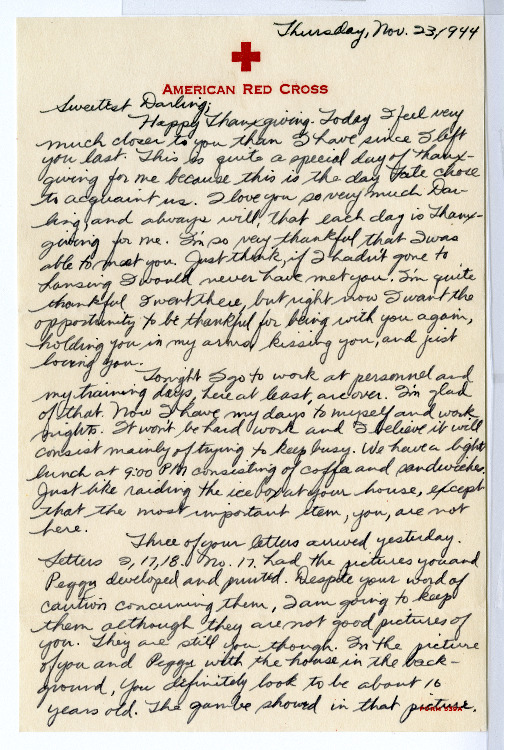 Thursday, Nov. 23, 1944
AMERICAN RED CROSS
Sweetest Darling;
Happy Thanxgiving. Today I feel very
much closer to you than I have since I left
you last. This is quite a special day of thanx-
giving for me because this is the day Fate chose
to acquaint us. I love you so very much Dar-
ling, and always will, that each day is Thanx-
giving for me. I'm so very thankful that I was
able to meet you. Just think, if I hadn't gone to
Lansing I would never have met you. I'm quite
thankful I went there, but right now I want the
opportunity to be thankful for being with you again,
holding you in my arms, kissing you, and just
loving you.
Tonight I go to work at personnel and
my training days, here at least, are over. I'm glad
of that. Now I have my days to myself and work
nights. It won't be hard work and I believe it will
consist mainly of trying to keep busy. We have a light
lunch at 9:00 PM consisting of coffee and sandwiches.
Just like raiding the icebox at your house, except
that the most important item, you, are not
here.
Three of your letters arrived yesterday.
Letters 2, 17, 18. No. 17 had the pictures you and
Peggy developed and printed. Despite your word of
caution concerning them, I am going to keep
them although they are not good pictures of
you. They are still you though. In the picture
of you and Peggy with the house in the back-
ground, you definitely look to be about 16
years old. The gam be showed in that picture.
FORM 539A